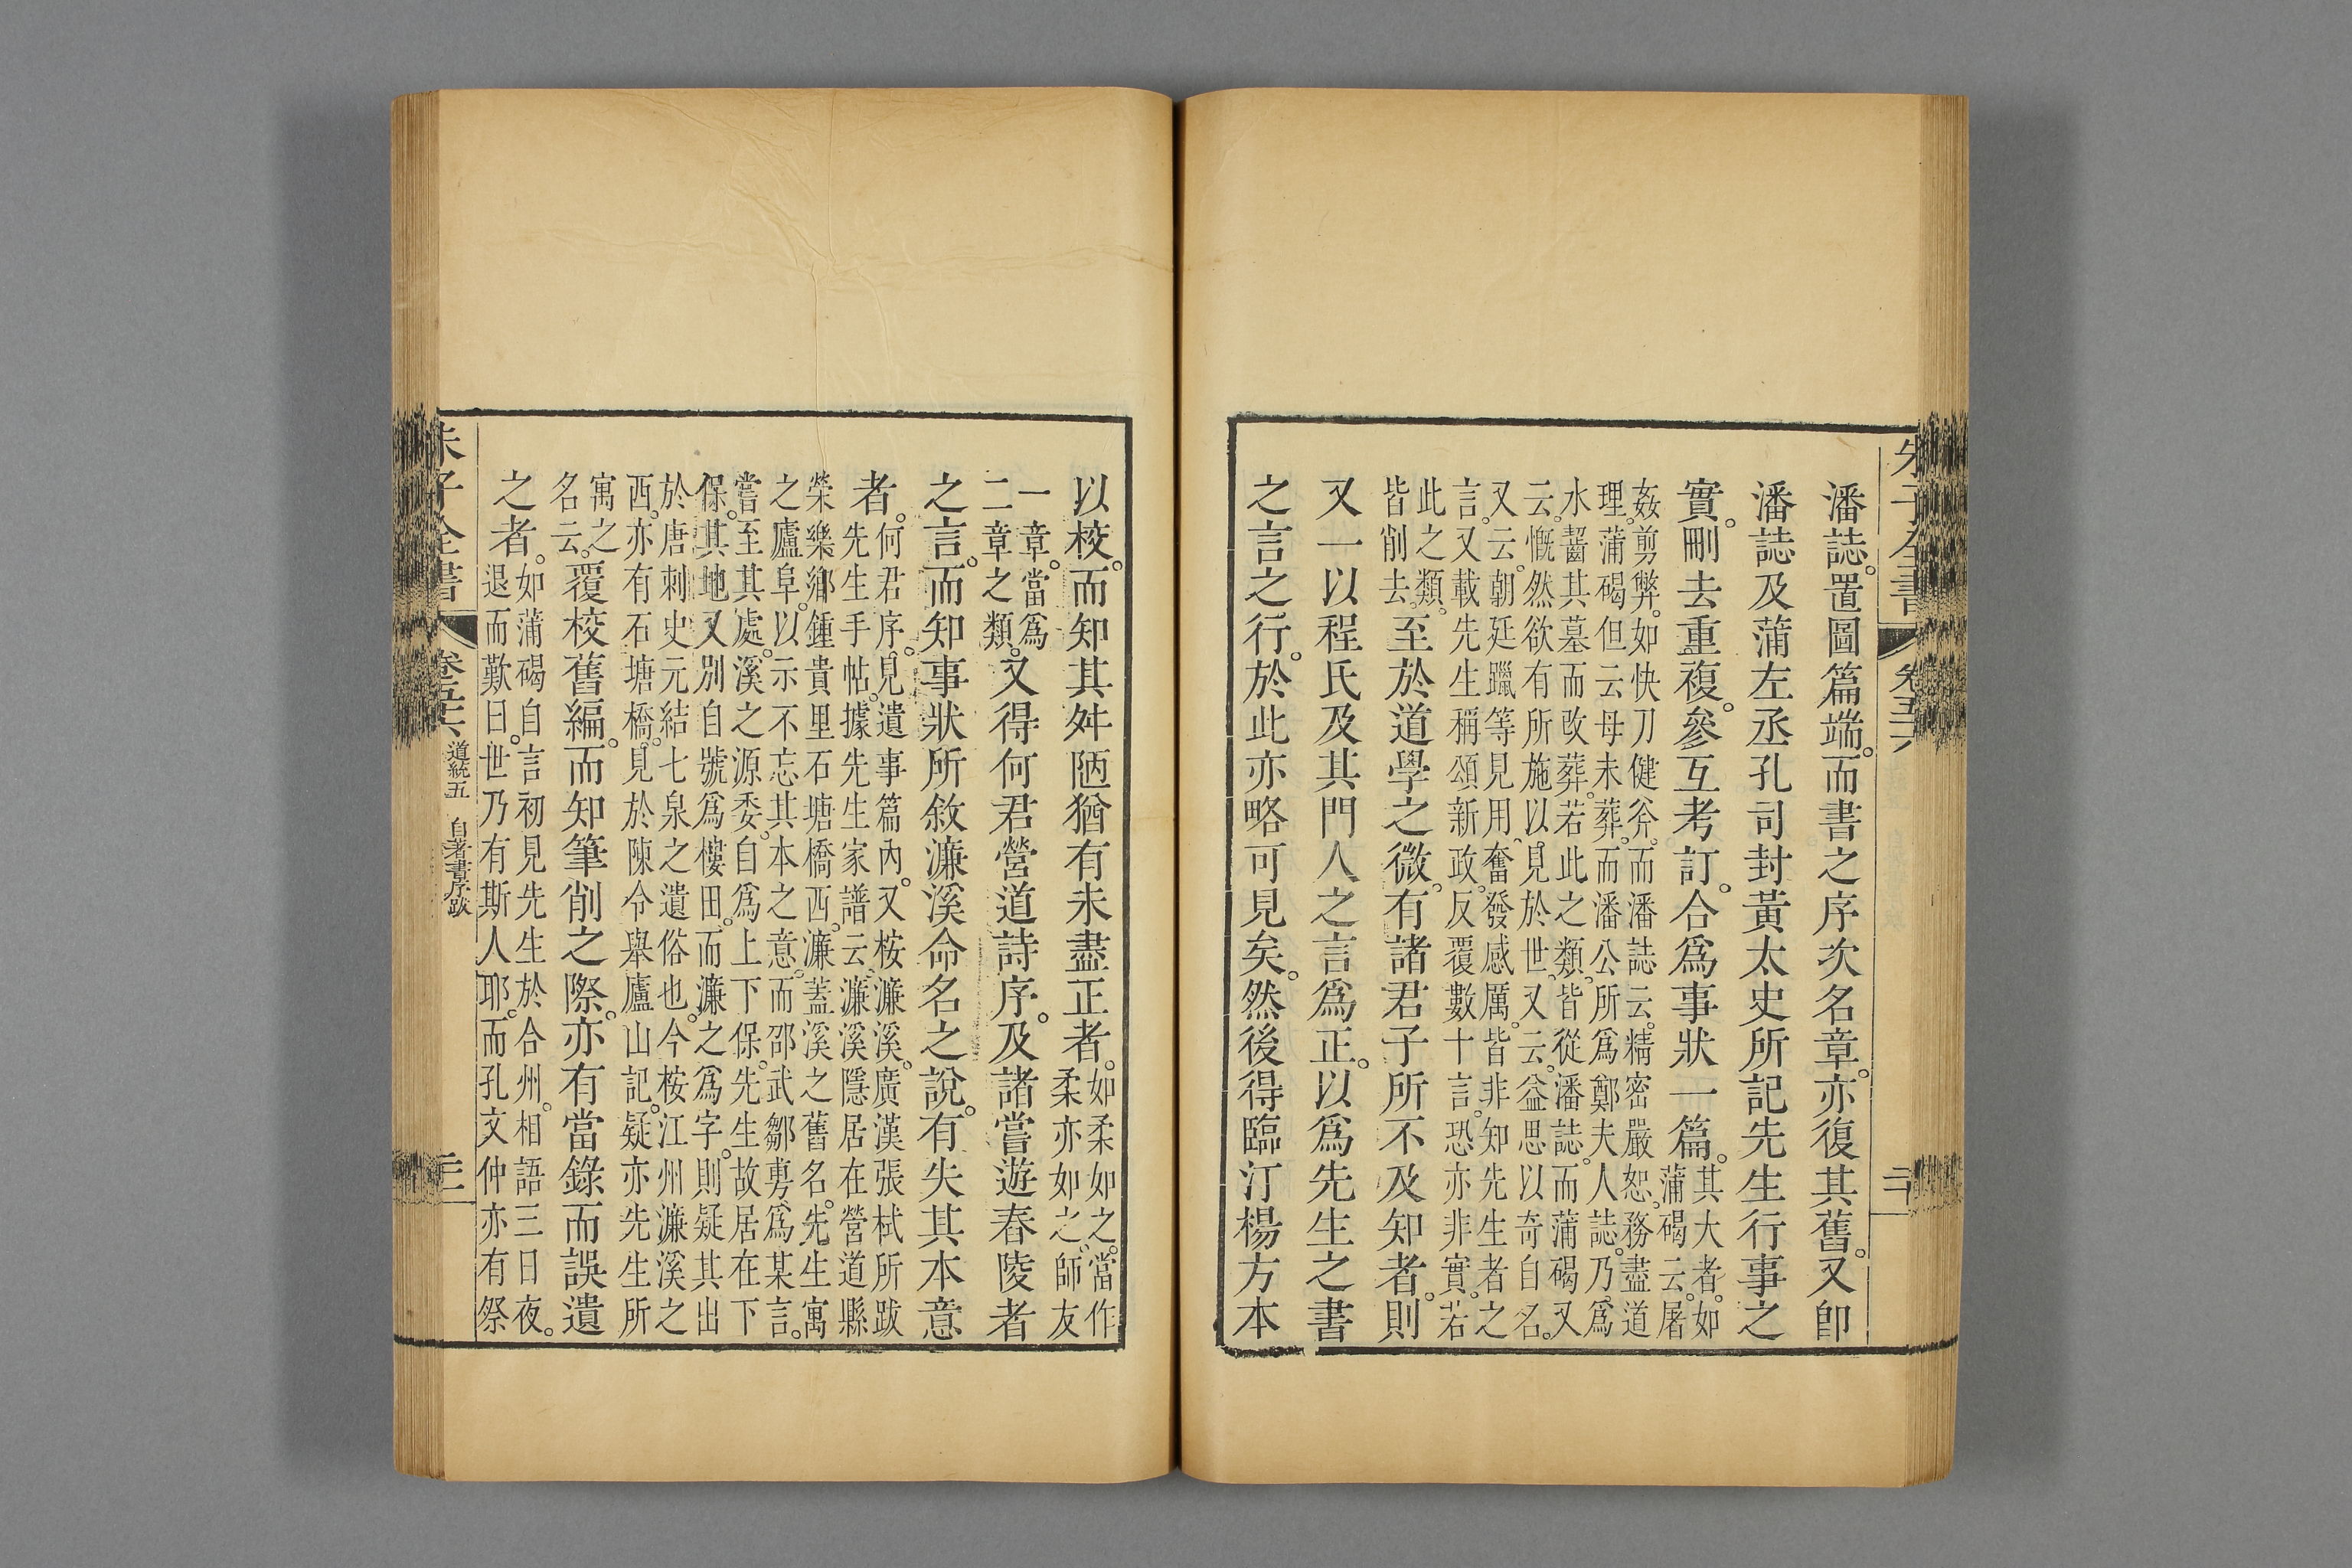 朱子全書 卷五十六 三十
潘誌。置圖篇端。而書之序次名章。亦復其舊。又卽
潘誌及蒲左丞孔司封黃太史所記先生行事之
實。刪去重複。參互考訂。合爲事狀一篇。其大者。如
蒲碣云。屠
姦剪弊。如快刀健斧。而潘誌云。精密嚴恕。務盡道
理。蒲碣但云母未葬。而潘公所爲鄭夫人誌。乃爲
水齧其墓而改葬。若此之類。皆從潘誌。而蒲碣又
云。慨然欲有所施。以見於世。又云。益思以奇自名。
又云。朝廷躐等見用。奮發感厲。皆非知先生者之
言。又載先生稱頌新政。反覆數十言。恐亦非實。若
此之類。
皆削去。至於道學之微。有諸君子所不及知者。則
又一以程氏及其門人之言爲正。以爲先生之書
之言之行。於此亦略可見矣。然後得臨汀楊方本
以校。而知其舛陋猶有未盡正者。如柔如之。當作
柔亦如之。師友
一章。當爲
二章之類。又得何君營道詩序。及諸嘗遊舂陵者
之言。而知事狀所敘濂溪命名之說。有失其本意
者。何君序。見遺事篇內。又桉濂溪。廣漢張栻所跋
先生手帖。據先生家譜云。濂溪隱居在營道縣
榮樂鄉鍾貴里石塘橋西。濂蓋溪之舊名。先生寓
之廬阜。以示不忘其本之意。而邵武鄒旉爲某言。
嘗至其處。溪之源委。自爲上下保。先生故居在下
保。其地又別自號爲樓田。而濂之爲字。則疑其出
於唐刺史元結七泉之遺俗也。今桉江州濂溪之
西。亦有石塘橋。見於陳令舉廬山記。疑亦先生所
寓之
名云。覆校舊編。而知筆削之際。亦有當錄而誤遺
之者。如蒲碣自言初見先生於合州。相語三日夜。
退而歎曰。世乃有斯人耶。而孔文仲亦有祭
朱子全書 卷五十六 道統五 自著書序跋